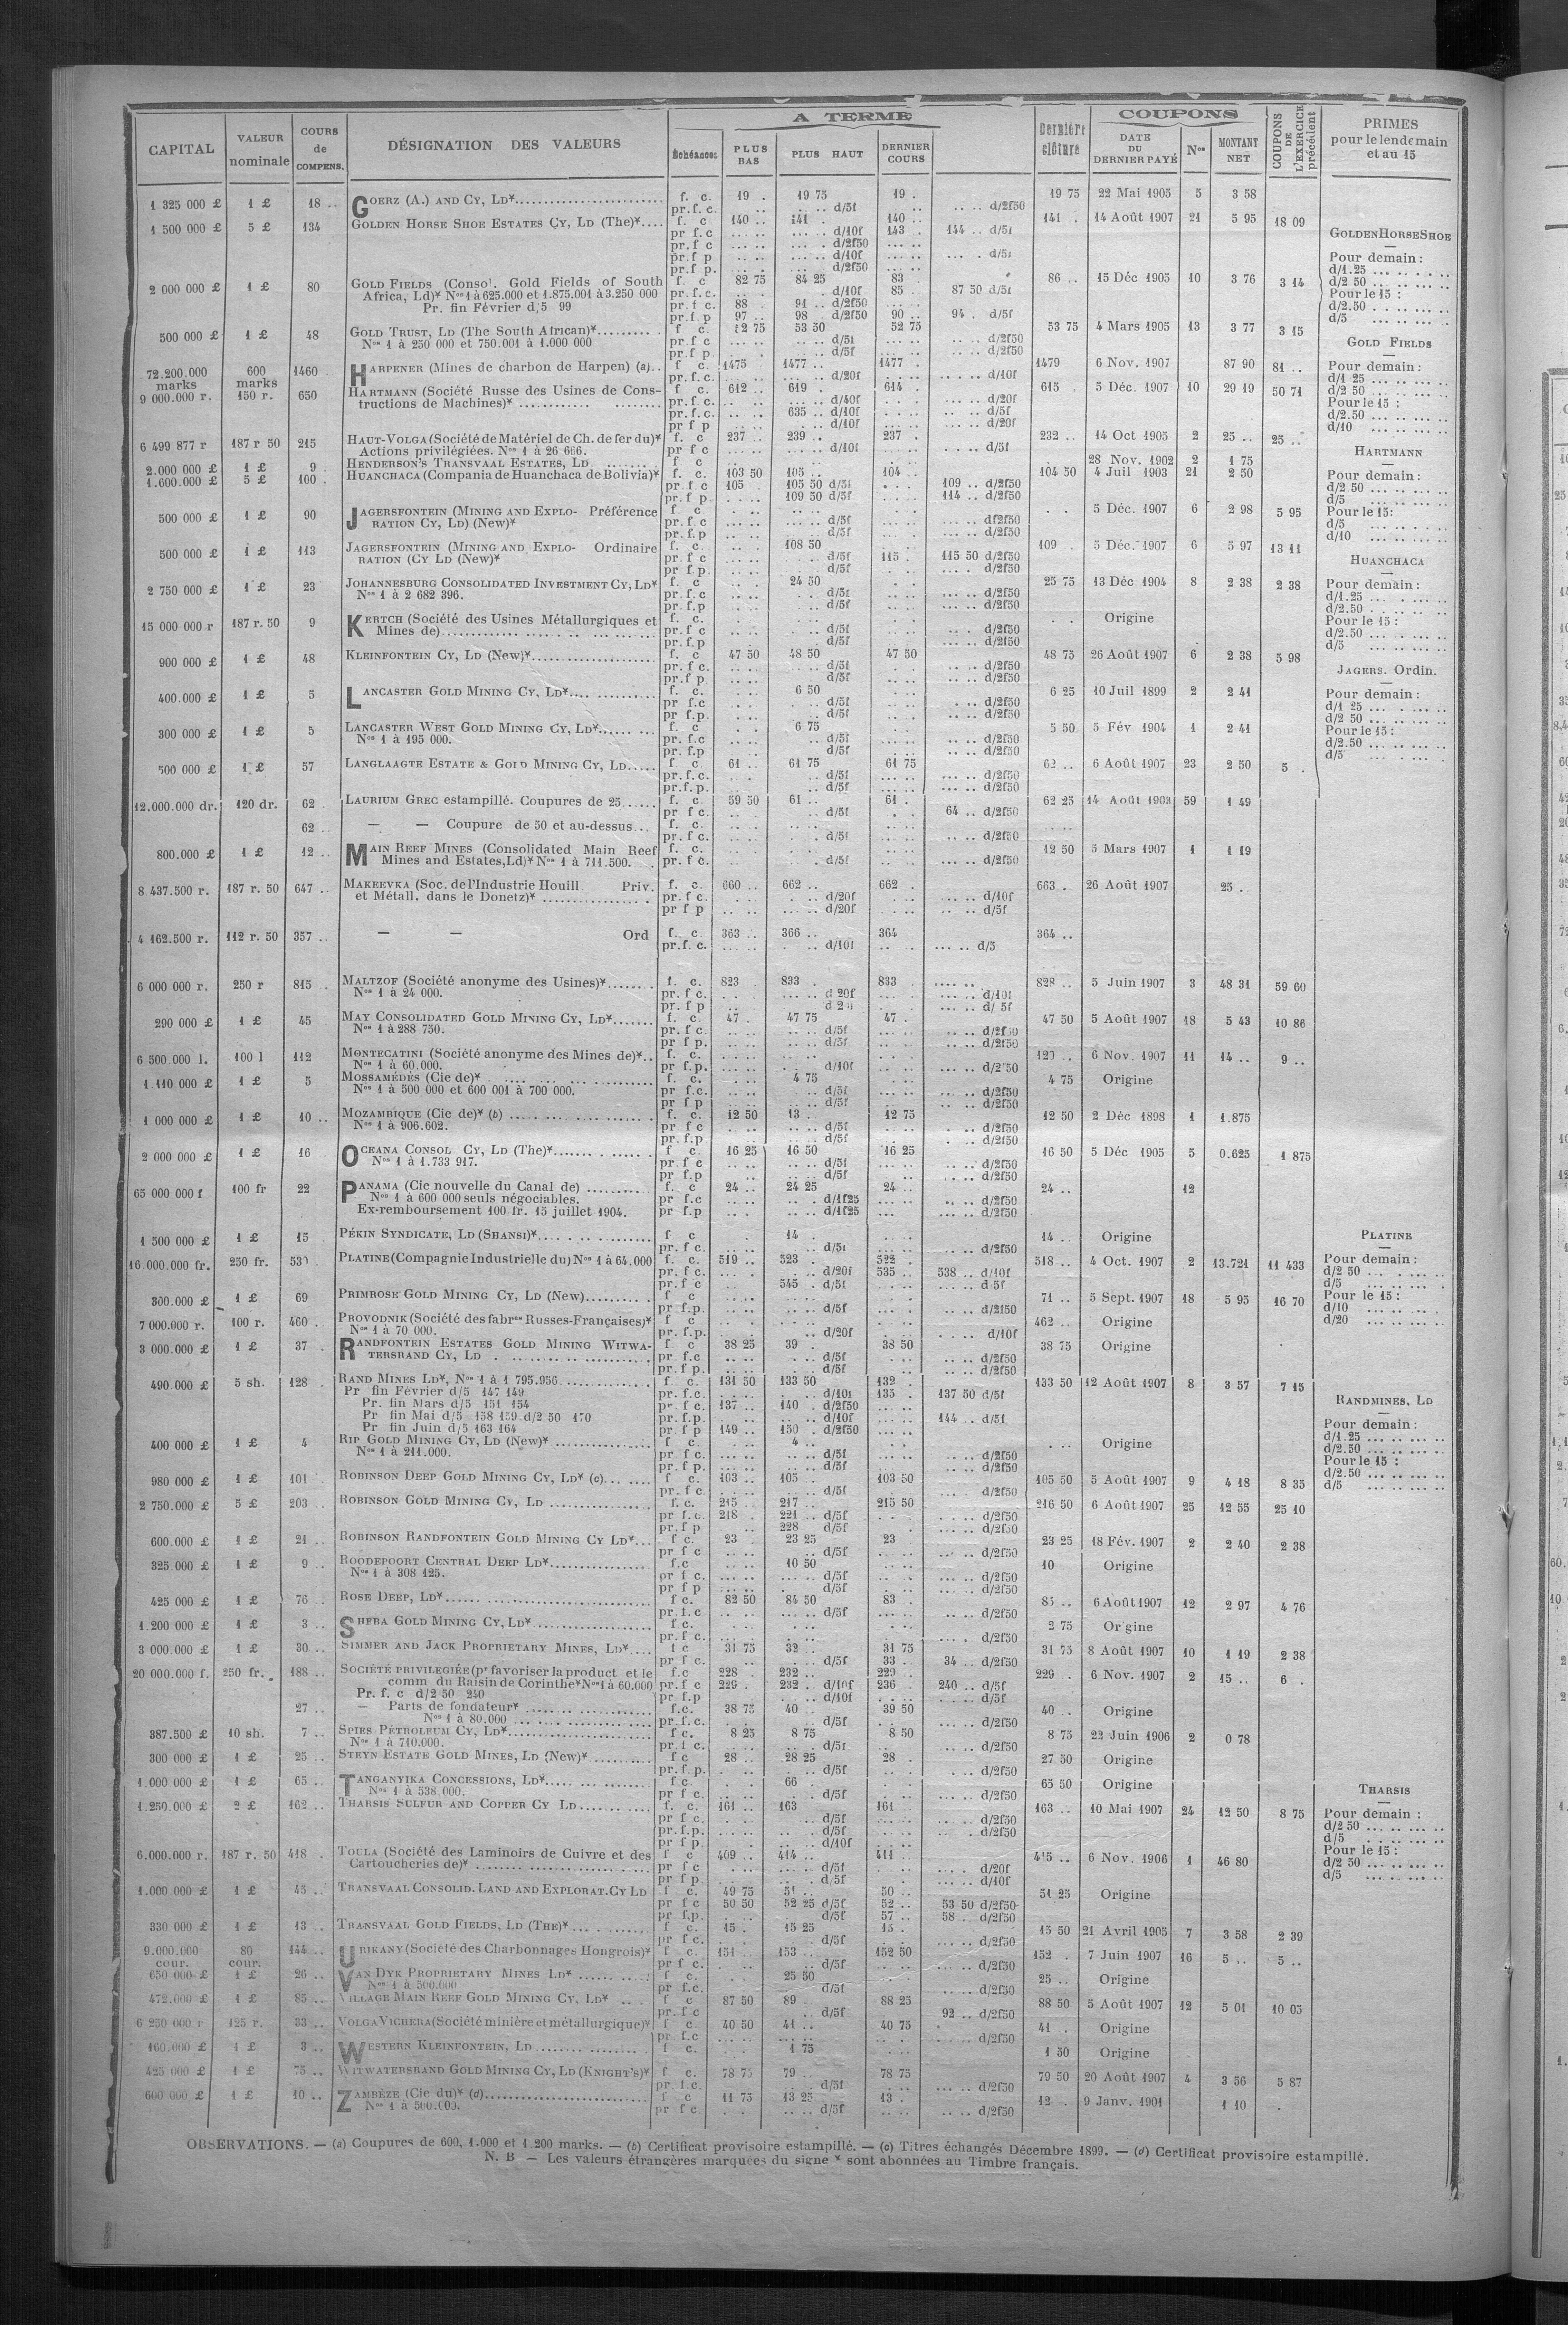 A TERME
COUPONS
CAPITAL | VALEUR nominale | COURS de COMPENS. | DÉSIGNATION DES VALEURS | Échéances | PLUS BAS | PLUS HAUT | DERNIER COURS | Dernière clôture | DATE DU DERNIER PAYÉ | Nos | MONTANT NET | COUPONS DE L'EXERCICE précédent | PRIMES pour le lendemain et au 15
1 325 000 £ | 1 £ | 18 .. | GOERZ (A.) AND CY, LD¥ | f. c. | 19 . | 19 75 | 19 . | 19 75 | 22 Mai 1905 | 5 | 3 58
pr. f. c. | d/5f | d/2f50
1 500 000 £ | 5 £ | 134 | GOLDEN HORSE SHOE ESTATES CY, LD (The)¥ | f. c | 140 .. | 141 . | 140 .. | 141 . | 14 Août 1907 | 21 | 5 95 | 18 09
pr f. c | d/10f | 143 .. | 144 .. d/5f
pr. f c | d/2f50
pr. f p | d/10f | d/5f
pr. f p. | d/2f50
2 000 000 £ | 1 £ | 80 | GOLD FIELDS (Consol. Gold Fields of South | f. c | 82 75 | 84 25 | 83 . | 86 .. | 15 Déc 1905 | 10 | 3 76 | 3 14
Africa, Ld)¥ Nos 1 à 625.000 et 1.875.001 à 3.250 000 | pr. f. c. | d/10f | 85 . | 87 50 d/5f
Pr. fin Février d/5 99 | pr. f c. | 88 . | 91 .. d/2f50
pr. f. p | 97 .. | 98 . d/2f50 | 90 .. | 94 . d/5f
500 000 £ | 1 £ | 48 | GOLD TRUST, LD (The South African)¥ | f c. | 52 75 | 53 50 | 52 75 | 53 75 | 4 Mars 1905 | 13 | 3 77 | 3 15
Nos 1 à 250 000 et 750.001 à 1.000 000 | pr. f c | d/5f | d/2f50
pr. f p | d/5f | d/2f50
72.200.000 marks | 600 marks | 1460 | HARPENER (Mines de charbon de Harpen) (a) | f c. | 1475 | 1477 .. | 1477 .. | 1479 | 6 Nov. 1907 | 87 90 | 81 ..
pr. f. c. | d/20f | d/10f
9 000.000 r. | 150 r. | 650 | HARTMANN (Société Russe des Usines de Cons- | f c. | 612 .. | 619 . | 614 . | 615 . | 5 Déc. 1907 | 10 | 29 19 | 50 71
tructions de Machines)¥ | pr. f. c. | d/40f | d/20f
pr. f. c. | 635 .. d/10f | d/5f
pr f p | d/10f | d/20f
6 499 877 r | 187 r 50 | 215 | HAUT-VOLGA (Société de Matériel de Ch. de fer du)¥ | f. c | 237 .. | 239 .. | 237 . | 232 .. | 14 Oct 1905 | 2 | 25 .. | 25 ..
Actions privilégiées. Nos 1 à 26 666. | pr f c | d/10f | d/5f
2.000 000 £ | 1 £ | 9 . | HENDERSON'S TRANSVAAL ESTATES, LD | f c | 28 Nov. 1902 | 2 | 1 75
1.600.000 £ | 5 £ | 100 . | HUANCHACA (Compania de Huanchaca de Bolivia)¥ | f. c. | 103 50 | 105 .. | 104 .. | 104 50 | 4 Juil 1903 | 21 | 2 50
pr f c | 105 . | 105 50 d/5f | 109 .. d/2f50
pr. f p. | 109 50 d/5f | 114 .. d/2f50
500 000 £ | 1 £ | 90 | JAGERSFONTEIN (MINING AND EXPLO- Préférence | f. c. | 5 Déc. 1907 | 6 | 2 98 | 5 95
RATION CY, LD) (New)¥ | pr. f. c | d/5f | df2f50
pr. f. p | d/5f | d/2f50
500 000 £ | 1 £ | 113 | JAGERSFONTEIN (MINING AND EXPLO- Ordinaire | f. c. | 108 50 | 109 . | 5 Déc. 1907 | 6 | 5 97 | 13 11
RATION (CY LD (New)¥ | pr f c | d/5f | 115 . | 115 50 d/2f50
pr f. p. | d/5f | d/2f50
2 750 000 £ | 1 £ | 23 | JOHANNESBURG CONSOLIDATED INVESTMENT CY, LD¥ | f. c | 24 50 | 25 75 | 13 Déc 1904 | 8 | 2 38 | 2 38
Nos 1 à 2 682 396. | pr. f. c | d/5f | d/2f50
pr. f. p | d/5f | d/2f50
15 000 000 r | 187 r. 50 | 9 | KERTCH (Société des Usines Métallurgiques et | f. c. | Origine
Mines de) | pr. f c | d/5f | d/2f50
pr. f. p | d/5f | d/2f50
900 000 £ | 1 £ | 48 | KLEINFONTEIN CY, LD (New)¥ | f. c | 47 50 | 48 50 | 47 50 | 48 75 | 26 Août 1907 | 6 | 2 38 | 5 98
pr. f c. | d/5f | d/2f50
pr. f p | d/5f | d/2f50
400.000 £ | 1 £ | 5 | LANCASTER GOLD MINING CY, LD¥ | f. c. | 6 50 | 6 25 | 10 Juil 1899 | 2 | 2 41
pr. f. c | d/5f | d/2f50
pr. f p. | d/5f | d/2f50
300 000 £ | 1 £ | 5 | LANCASTER WEST GOLD MINING CY, LD¥ | f. c | 6 75 | 5 50 | 5 Fév 1904 | 1 | 2 41
Nos 1 à 195 000. | pr. f. c | d/5f | d/2f50
pr. f. p | d/5f | d/2f50
500 000 £ | 1 £ | 57 | LANGLAAGTE ESTATE & GOLD MINING CY, LD | f. c. | 61 .. | 61 75 | 61 75 | 62 .. | 6 Août 1907 | 23 | 2 50 | 5 .
pr. f. c. | d/5f | d/2f50
pr. f. p. | d/5f | d/2f50
12.000.000 dr. | 120 dr. | 62 . | LAURIUM GREC estampillé. Coupures de 25 | f. c. | 59 50 | 61 .. | 61 . | 62 25 | 14 Août 1903 | 59 | 1 49
pr f c. | d/5f | 64 .. d/2f50
62 .. | — — Coupure de 50 et au-dessus | f. c.
pr. f c. | d/5f | d/2f50
800.000 £ | 1 £ | 12 .. | MAIN REEF MINES (Consolidated Main Reef | f. c. | 12 50 | 5 Mars 1907 | 1 | 1 19
Mines and Estates, Ld)¥ Nos 1 à 711.500. | pr. f c. | d/5f | d/2f50
8 437.500 r. | 187 r. 50 | 647 .. | MAKEEVKA (Soc. de l'Industrie Houill Priv. | f. c. | 660 .. | 662 .. | 662 . | 663 . | 26 Août 1907 | 25 .
et Métall. dans le Donetz)¥ | pr. f c. | d/20f | d/10f
pr f p | d/20f | d/5f
4 162.500 r. | 112 r. 50 | 357 .. | — — Ord | f. c. | 363 .. | 366 .. | 364 | 364 ..
pr. f. c. | d/10f | d/5
6 000 000 r. | 250 r | 815 . | MALTZOF (Société anonyme des Usines)¥ | f. c. | 823 | 833 . | 833 . | 828 .. | 5 Juin 1907 | 3 | 48 31 | 59 60
Nos 1 à 24 000. | pr. f c. | d 20f | d/10f
pr. f p | d/ 5f
290 000 £ | 1 £ | 45 | MAY CONSOLIDATED GOLD MINING CY, LD¥ | f. c. | 47 . | 47 75 | 47 . | 47 50 | 5 Août 1907 | 18 | 5 43 | 10 86
Nos 1 à 288 750. | pr. f c. | d/5f | d/2f50
pr f p. | d/5f | d/2f50
6 500 000 l. | 100 l | 112 | MONTECATINI (Société anonyme des Mines de)¥ | f. c. | 120 .. | 6 Nov. 1907 | 11 | 14 .. | 9 ..
Nos 1 à 60.000. | pr f. p. | d/10f | d/2 50
1 110 000 £ | 1 £ | 5 | MOSSAMÉDÈS (Cie de)¥ | f. c. | 4 75 | 4 75 | Origine
Nos 1 à 500 000 et 600 001 à 700 000. | pr f. c. | d/5f | d/2f50
pr f p | d/5f | d/2f50
1 000 000 £ | 1 £ | 10 .. | MOZAMBIQUE (Cie de)¥ (b) | f. c. | 12 50 | 13 . | 12 75 | 12 50 | 2 Déc 1898 | 1 | 1.875
Nos 1 à 906.602. | pr f c | d/5f | d/2f50
pr. f. p | d/5f | d/2f50
2 000 000 £ | 1 £ | 16 | OCEANA CONSOL CY, LD (The)¥ | f c. | 16 25 | 16 50 | 16 25 | 16 50 | 5 Déc 1905 | 5 | 0.625 | 1 875
Nos 1 à 1.733 917. | pr. f c | d/5f | d/2f50
pr f. p | d/5f | d/2f50
65 000 000 f | 100 fr | 22 | PANAMA (Cie nouvelle du Canal de) | f. c | 24 .. | 24 25 | 24 .. | 24 .. | 12
Nos 1 à 600 000 seuls négociables. | pr f.c | d/1f25 | d/2f50
Ex-remboursement 100 fr. 15 juillet 1904. | pr f.p | d/1f25 | d/2f50
1 500 000 £ | 1 £ | 15 | PÉKIN SYNDICATE, LD (SHANSI)¥ | f c | 14 . | 14 .. | Origine
pr. f c. | d/5f | d/2f50
16.000.000 fr. | 250 fr. | 530 . | PLATINE (Compagnie Industrielle du) Nos 1 à 64.000 | f. c. | 519 .. | 523 . | 522 . | 518 .. | 4 Oct. 1907 | 2 | 13.721 | 11 433
pr. f c. | d/20f | 535 .. | 538 .. d/10f
pr. f c | 545 . d/5f | d 5f
300.000 £ | 1 £ | 69 | PRIMROSE GOLD MINING CY, LD (New) | f c | 71 .. | 5 Sept. 1907 | 18 | 5 95 | 16 70
pr f.p. | d/5f | d/2f50
7 000.000 r. | 100 r. | 460 .. | PROVODNIK (Société des fabres Russes-Françaises)¥ | f c | 462 .. | Origine
Nos 1 à 70 000. | pr. f.p. | d/20f | d/10f
3 000.000 £ | 1 £ | 37 . | RANDFONTEIN ESTATES GOLD MINING WITWA- | f c | 38 25 | 39 . | 38 50 | 38 75 | Origine
TERSRAND CY, LD | pr f.c | d/5f | d/2f50
pr f p. | d/5f | d/2f50
490.000 £ | 5 sh. | 128 . | RAND MINES LD¥, Nos 1 à 1 795.956 | f. c. | 131 50 | 133 50 | 132 . | 133 50 | 12 Août 1907 | 8 | 3 57 | 7 15
Pr fin Février d/5 147 149 | pr. f.c. | d/10f | 135 . | 137 50 d/5f
Pr. fin Mars d/5 151 154 | pr. f c. | 137 .. | 140 . d/2f50
Pr fin Mai d/5 158 159 d/2 50 170 | pr. f.p. | d/10f | 144 .. d/5f
Pr fin Juin d/5 163 164 | pr. f p | 149 .. | 150 . d/2f50
400 000 £ | 1 £ | 4 | RIP GOLD MINING CY, LD (New)¥ | f c. | 4 .. | Origine
Nos 1 à 211.000. | pr f c. | d/5f | d/2f50
pr. f p. | d/5f | d/2f50
980 000 £ | 1 £ | 101 | ROBINSON DEEP GOLD MINING CY, LD¥ (c) | f c. | 103 .. | 105 .. | 103 50 | 105 50 | 5 Août 1907 | 9 | 4 18 | 8 35
pr. f c. | d/5f | d/2f50
2 750.000 £ | 5 £ | 203 .. | ROBINSON GOLD MINING CY, LD | f. c. | 215 .. | 217 .. | 215 50 | 216 50 | 6 Août 1907 | 25 | 12 55 | 25 10
pr f. c. | 218 . | 221 .. d/5f | d/2f50
pr. f p | 228 d/5f | d/2f50
600.000 £ | 1 £ | 21 .. | ROBINSON RANDFONTEIN GOLD MINING CY LD¥ | f c. | 23 . | 23 25 | 23 | 23 25 | 18 Fév. 1907 | 2 | 2 40 | 2 38
pr f c | d/5f | d/2f50
325.000 £ | 1 £ | 9 .. | ROODEPOORT CENTRAL DEEP LD¥ | f.c | 10 50 | 10 | Origine
Nos 1 à 308 125. | pr f c. | d/5f | d/2f50
pr f p | d/5f | d/2f50
425 000 £ | 1 £ | 76 .. | ROSE DEEP, LD¥ | f c. | 82 50 | 84 50 | 83 . | 85 .. | 6 Août 1907 | 12 | 2 97 | 4 76
pr. f. c | d/5f | d/2f50
1.200 000 £ | 1 £ | 3 .. | SHEBA GOLD MINING CY, LD¥ | f c. | 2 75 | Origine
pr. f c. | d/2f50
3 000.000 £ | 1 £ | 30 .. | SIMMER AND JACK PROPRIETARY MINES, LD¥ | f c | 31 75 | 32 . | 31 75 | 31 75 | 8 Août 1907 | 10 | 1 19 | 2 38
pr f c. | d/5f | 33 .. | 34 .. d/2f50
20 000.000 f. | 250 fr. | 188 .. | SOCIÉTÉ PRIVILEGIÉE (pr favoriser la product et le | f.c | 228 . | 232 .. | 229 .. | 229 .. | 6 Nov. 1907 | 2 | 15 .. | 6 .
comm du Raisin de Corinthe¥ Nos 1 à 60.000 | pr. f c | 229 . | 232 .. d/10f | 236 . | 240 .. d/5f
Pr. f. c d/2 50 240 | pr. f.p | d/10f | d/5f
27 .. | — Parts de fondateur¥ | f.c. | 38 75 | 40 .. | 39 50 | 40 .. | Origine
Nos 1 à 80.000 | pr. f. c. | d/5f | d/2f50
387.500 £ | 10 sh. | 7 .. | SPIES PÉTROLEUM CY, LD¥ | f c. | 8 25 | 8 75 | 8 50 | 8 75 | 22 Juin 1906 | 2 | 0 78
Nos 1 à 710.000. | pr. f c. | d/5f | d/2f50
300 000 £ | 1 £ | 25 .. | STEYN ESTATE GOLD MINES, LD (New)¥ | f c | 28 .. | 28 25 | 28 . | 27 50 | Origine
pr. f. p. | d/5f | d/2f50
1.000 000 £ | 1 £ | 65 .. | TANGANYIKA CONCESSIONS, LD¥ | f c | 66 | 65 50 | Origine
Nos 1 à 538 000. | pr f c. | d/5f | d/2f50
1.250.000 £ | 2 £ | 162 .. | THARSIS SULFUR AND COPPER CY LD | f. c. | 161 .. | 163 | 161 .. | 163 .. | 10 Mai 1907 | 24 | 12 50 | 8 75
pr f c. | d/5f | d/2f50
pr. f.p. | d/5f | d/2f50
pr f p. | d/10f
6.000.000 r. | 187 r. 50 | 418 . | TOULA (Société des Laminoirs de Cuivre et des | f c | 409 .. | 414 .. | 411 .. | 415 .. | 6 Nov. 1906 | 1 | 46 80
Cartoucheries de)¥ | pr f c | d/5f | d/20f
pr f p | d/5f | d/10f
1.000 000 £ | 1 £ | 45 .. | TRANSVAAL CONSOLID. LAND AND EXPLORAT. CY LD | f c. | 49 75 | 51 .. | 50 .. | 51 25 | Origine
pr f c | 50 50 | 52 25 d/5f | 52 .. | 53 50 d/2f50
pr f.p. | d/5f | 57 .. | 58 .. d/2f50
330 000 £ | 1 £ | 13 .. | TRANSVAAL GOLD FIELDS, LD (THE)¥ | f c. | 15 . | 15 25 | 15 . | 15 50 | 21 Avril 1905 | 7 | 3 58 | 2 39
pr f c. | d/5f | d/2f50
9.000.000 cour. | 80 cour. | 144 .. | URIKANY (Société des Charbonnages Hongrois)¥ | f c. | 151 .. | 153 .. | 152 50 | 152 . | 7 Juin 1907 | 16 | 5 .. | 5 ..
pr f c. | d/5f | d/2f50
650 000 £ | 1 £ | 26 .. | VAN DYK PROPRIETARY MINES LD¥ | f c. | 25 50 | 25 .. | Origine
Nos 1 à 500.000 | pr f.c. | d/5f | d/2f50
472.000 £ | 1 £ | 85 .. | VILLAGE MAIN REEF GOLD MINING CY, LD¥ | f c | 87 50 | 89 | 88 25 | 88 50 | 5 Août 1907 | 12 | 5 01 | 10 05
pr. f c | d/5f | 92 .. d/2f50
6 250 000 r | 125 r. | 33 .. | VOLGA VICHERA (Société minière et métallurgique)¥ | f c. | 40 50 | 41 .. | 40 75 | 41 . | Origine
pr f.c | d/2f50
160.000 £ | 1 £ | 3 .. | WESTERN KLEINFONTEIN, LD | f c. | 1 75 | 1 50 | Origine
425 000 £ | 1 £ | 75 .. | WITWATERSRAND GOLD MINING CY, LD (KNIGHT'S)¥ | f c. | 78 75 | 79 .. | 78 75 | 79 50 | 20 Août 1907 | 4 | 3 56 | 5 87
pr. f.c. | d/5f | d/2f50
600 000 £ | 1 £ | 10 .. | ZAMBÈZE (Cie du)¥ (d) | f c | 11 75 | 13 25 | 13 . | 12 . | 9 Janv. 1901 | 1 10
Nos 1 à 500.000. | pr f c | d/5f | d/2f50
GOLDEN HORSE SHOE
Pour demain :
d/1.25
d/2 50
Pour le 15 :
d/2.50
d/5
GOLD FIELDS
Pour demain :
d/1 25
d/2 50
Pour le 15 :
d/2.50
d/10
HARTMANN
Pour demain :
d/2 50
d/5
Pour le 15 :
d/5
d/10
HUANCHACA
Pour demain :
d/1.25
d/2.50
Pour le 15 :
d/2.50
d/5
JAGERS. Ordin.
Pour demain :
d/1 25
d/2 50
Pour le 15 :
d/2.50
d/5
PLATINE
Pour demain :
d/2 50
d/5
Pour le 15 :
d/10
d/20
RANDMINES, LD
Pour demain :
d/1.25
d/2.50
Pour le 15 :
d/2.50
d/5
THARSIS
Pour demain :
d/2 50
d/5
Pour le 15 :
d/2 50
d/5
OBSERVATIONS. — (a) Coupures de 600, 1.000 et 1 200 marks. — (b) Certificat provisoire estampillé. — (c) Titres échangés Décembre 1899. — (d) Certificat provisoire estampillé.
N. B — Les valeurs étrangères marquées du signe ¥ sont abonnées au Timbre français.